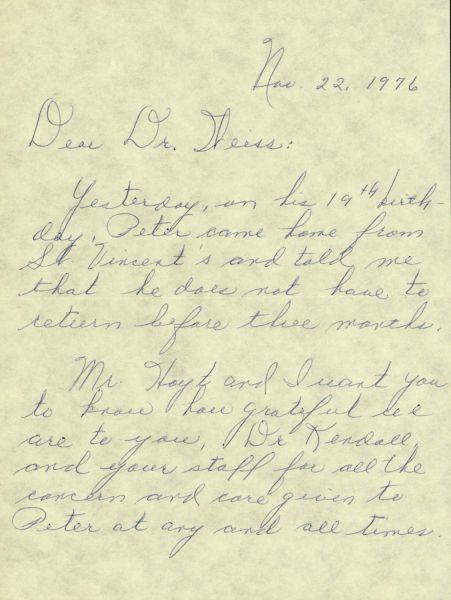 Nov. 22, 1976
Dear Dr. Weiss:
Yesterday, on his 19th birth-
day, Peter came home from
St. Vincent's and told me
that he does not have to
return before thee months.
Mr. Hoyt and I want you
to know how grateful we
are to you, Dr Kendall,
and your staff for all the
concern and care given to
Peter at any and all times.